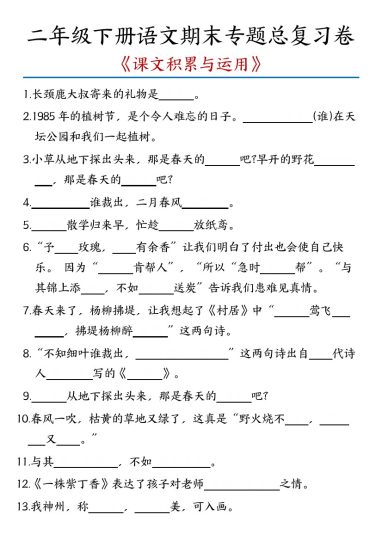 二年级下册语文期末专题总复习卷
《课文积累与运用》
1.长颈鹿大叔寄来的礼物是______。
2.1985 年的植树节，是个令人难忘的日子。__________(谁)在天
坛公园和我们一起植树。
3.小草从地下探出头来，那是春天的______吧?早开的野花______
___，那是春天的______吧?
4.__________谁裁出，二月春风________。
5.______散学归来早，忙趁______放纸鸢。
6.“子____玫瑰，____有余香”让我们明白了付出也会使自己快
乐。 因为“______肯帮人”，“所以“急时______帮”。“与
其锦上添____，不如______送炭”告诉我们患难见真情。
7.春天来了，杨柳拂堤，让我想起了《村居》中“______莺飞___
______，拂堤杨柳醉______”这两句诗。
8.“不知细叶谁裁出，________________”这两句诗出自____代诗
人__________写的《______》。
9.______从地下探出头来，那是春天的______吧?
10.春风一吹，枯黄的草地又绿了，这真是“野火烧不____，_____
___又____。”
11.与其___________，不如__________。
12.《一株紫丁香》表达了孩子对老师_____________之情。
13.我神州，称______，______美，可入画。